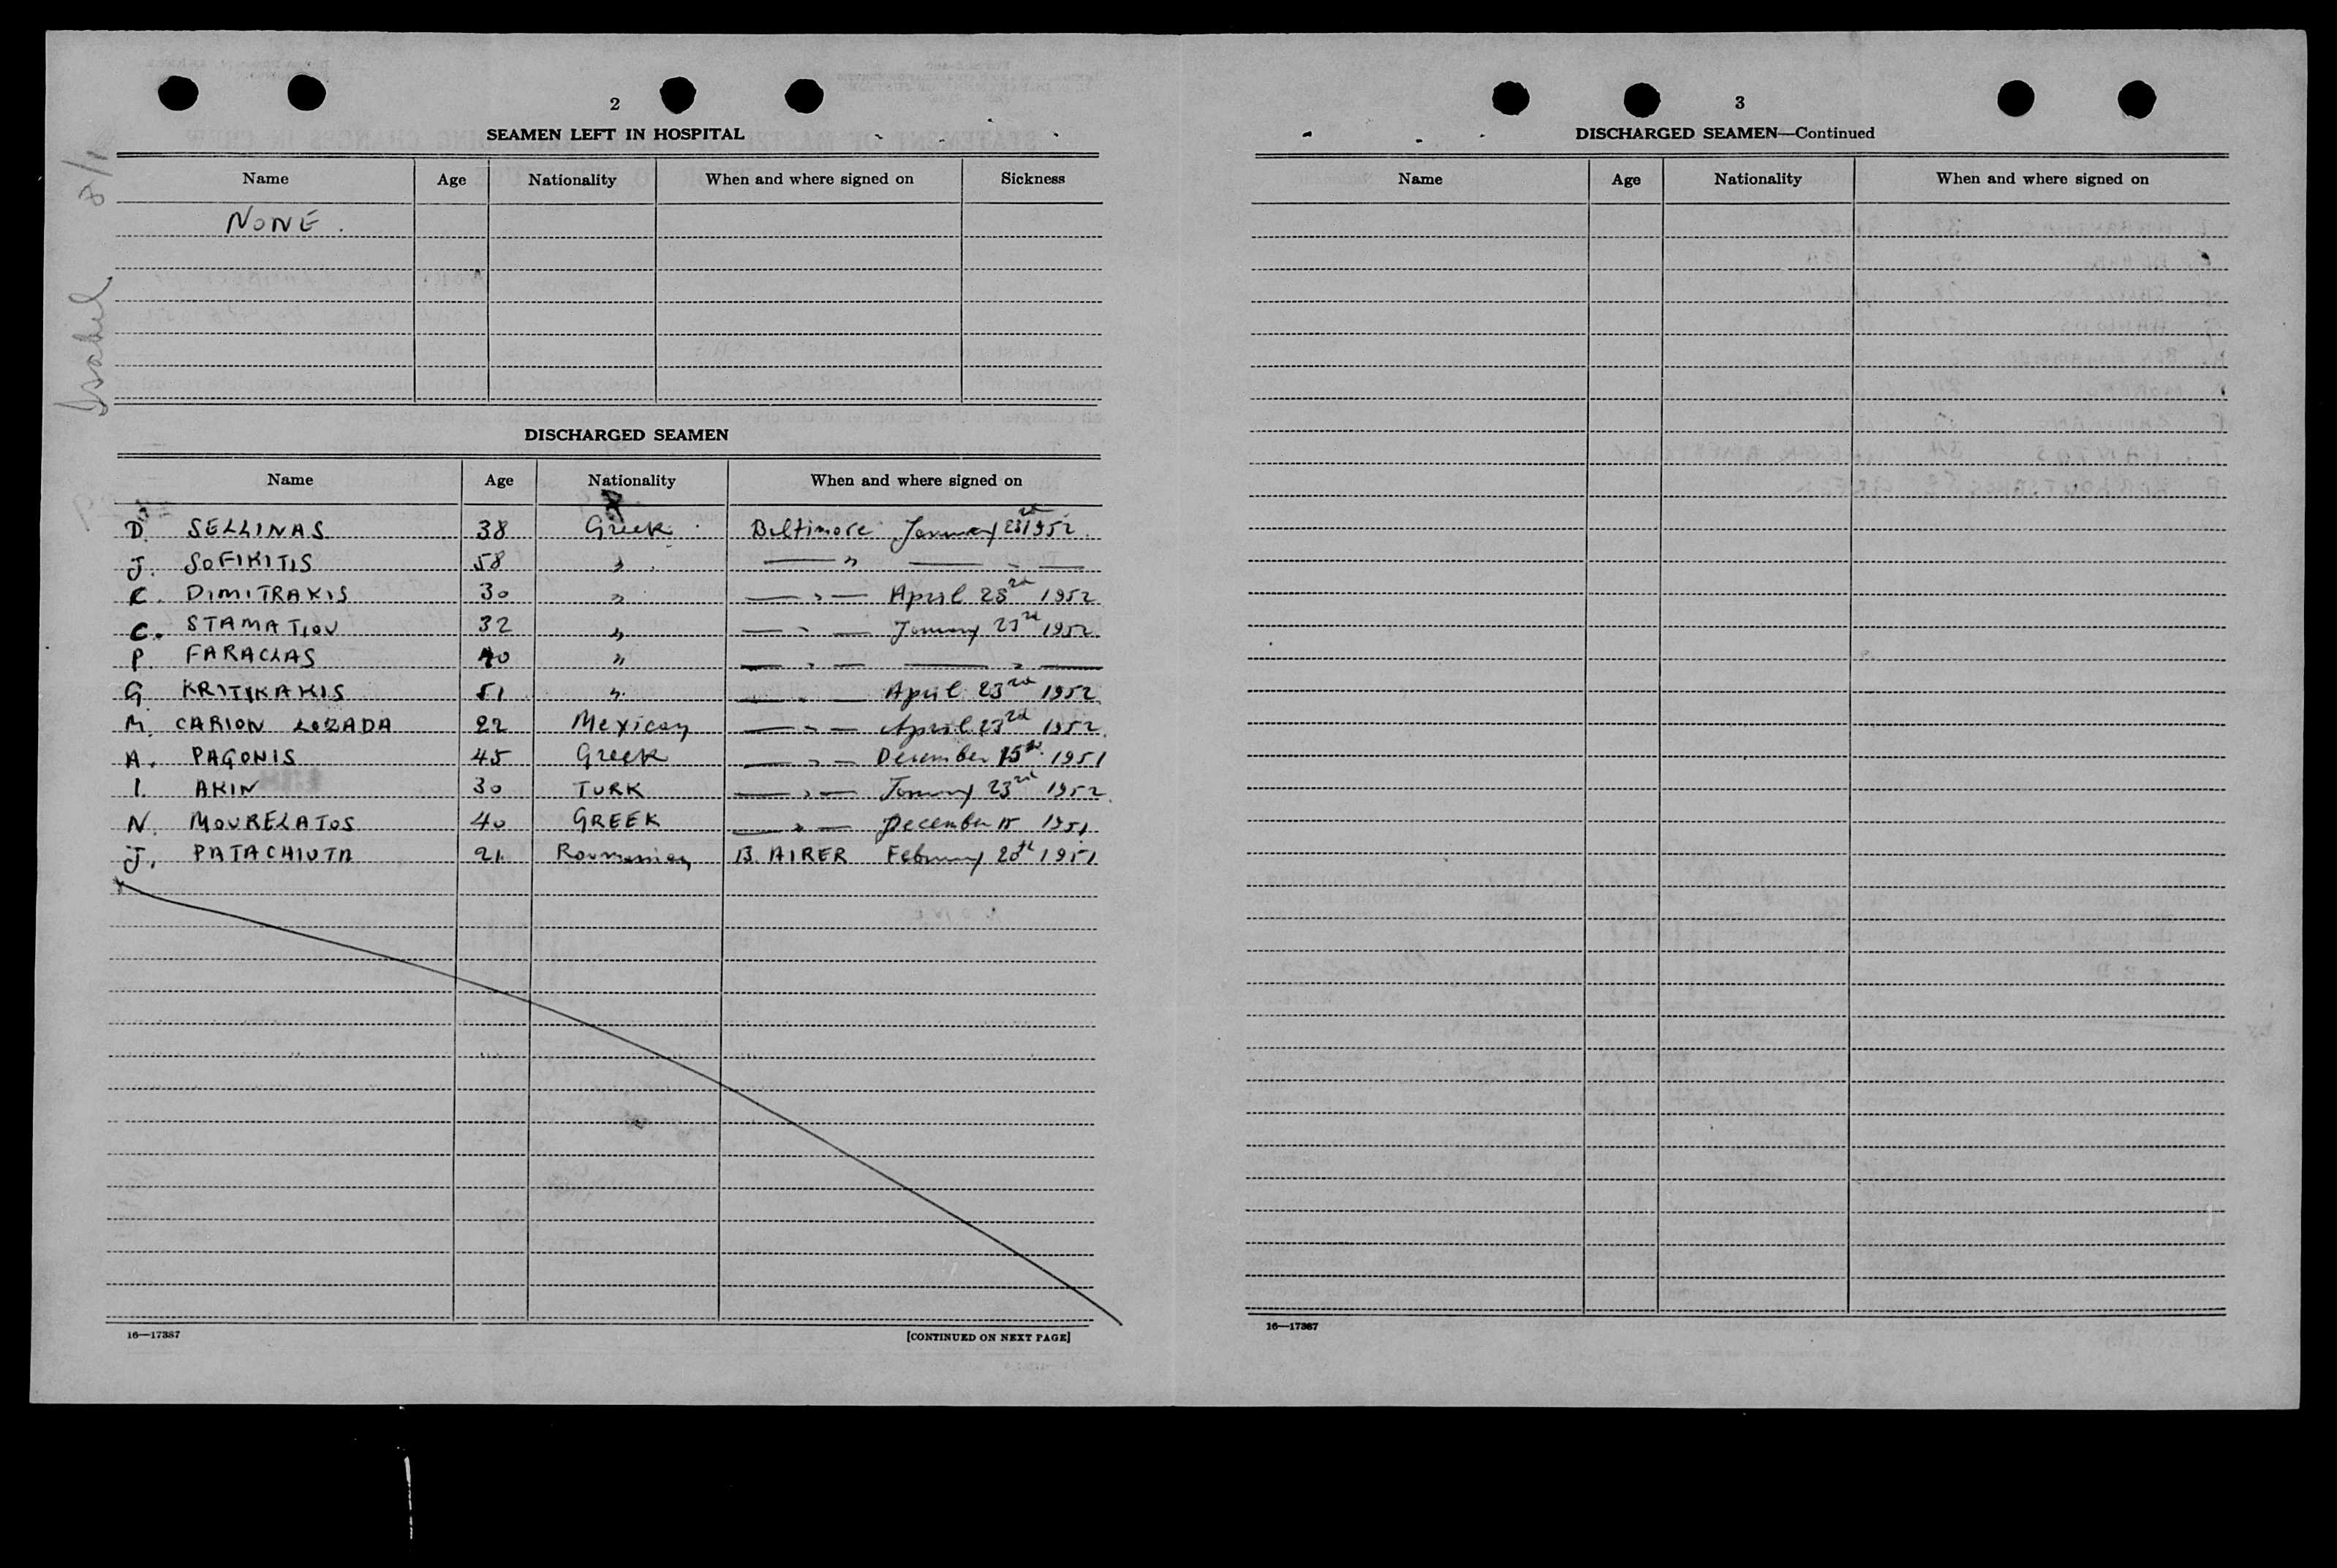 2
SEAMEN LEFT IN HOSPITAL
Name Age Nationality When and where signed on Sickness
NONE.
Isabel
DISCHARGED SEAMEN
Name Age Nationality When and where signed on
D. SELLINAS 38 Greek Baltimore January 23rd 1952
J. SOFIKITIS 58 " — " — — " —
C. DIMITRAKIS 30 " — " — April 23rd 1952
C. STAMATIOU 32 " — " — January 23rd 1952
P. FARACLAS 40 " — " — — " —
G KRITIKAKIS 51 " — " — April 23rd 1952
M. CARION LOZADA 22 Mexican — " — April 23rd 1952
A. PAGONIS 45 Greek — " — December 15th 1951
I. AKIN 30 TURK — " — January 23rd 1952
N. MOURELATOS 40 GREEK — " — December 15 1951
J. PATACHIUTA 21 Roumanian B. AIRER February 20th 1951
16—17387 [CONTINUED ON NEXT PAGE]
3
DISCHARGED SEAMEN—Continued
Name Age Nationality When and where signed on
16—17387